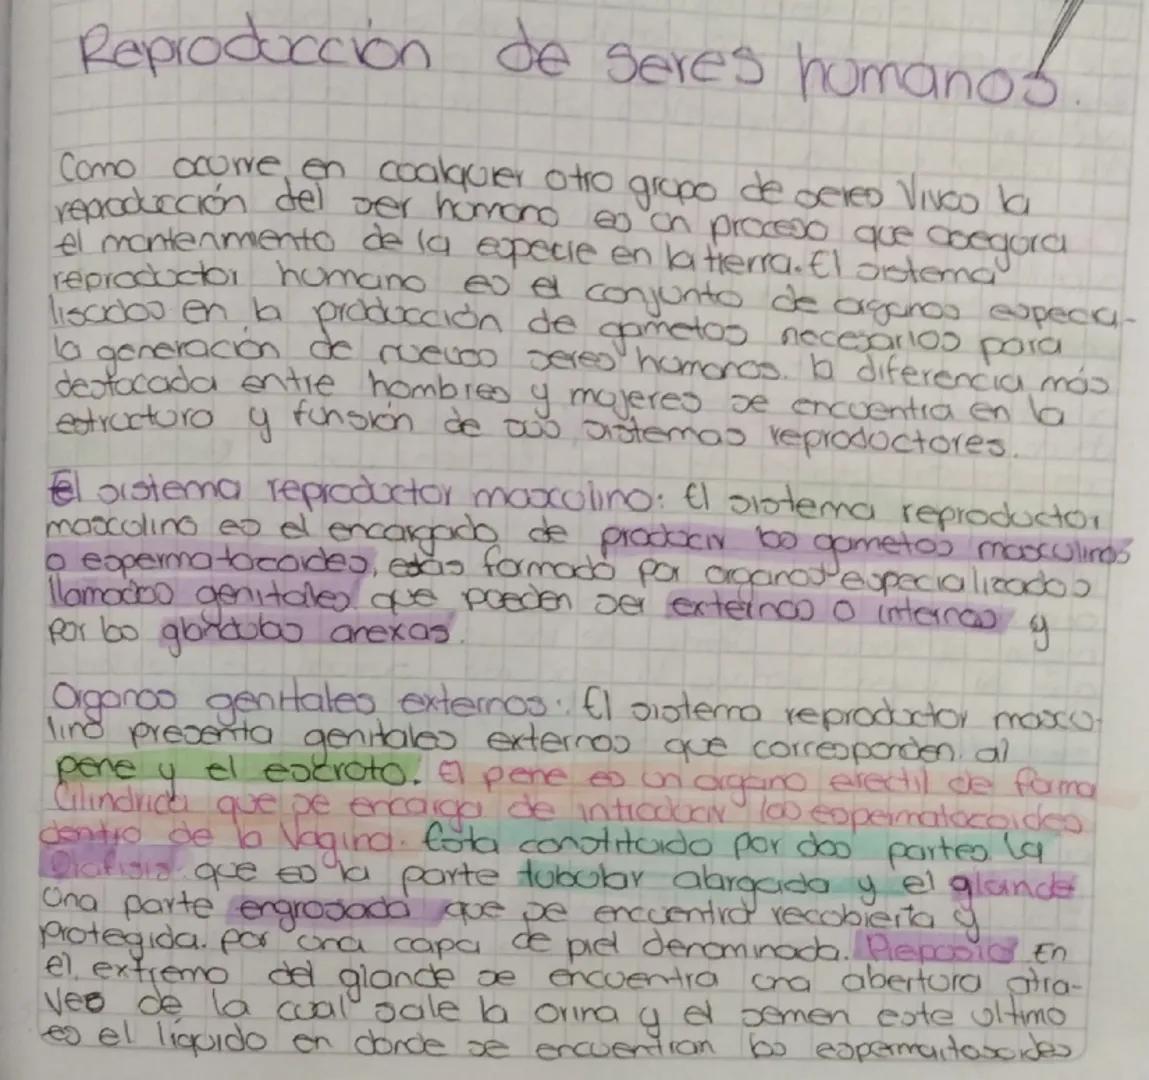 Reproducción de seres humanos.
Como ocurre en cualquier otro grupo de seres vivos la
reproducción del ser humano es un proceso que asegura
el mantenmiento de la especie en la tierra. El sistema
reproductor humano es el conjunto de organos especia-
lisados en la producción de gametos necesarios para
la generación de nuevos seres humanos. la diferencia más
destacada entre hombres y mujeres se encuentra en la
estructura y funsión de sus sistemas reproductores.
El sistema reproductor masculino: El sistema reproductor
masculino es el encargado de producir los gametos masculinos
o espermatozoides, estas formado por organos especializados
llamados genitales que pueden ser externos o internos y
por las glandulas anexas.
Organos genitales externos: El sistema reproductor mascu-
lino presenta genitales externos que corresponden al
pene y el escroto. El pene es un organo erectil de forma
Cilindrica que se encarga de introducir los espermatozoides
dentro de la Vagina. Esta constituido por dos partes la
Diafisis que es la parte tubular alargada y el glande
Una parte engrosada que se encuentra recobierta y
protegida por una capa de piel denominada. Prepucio En
el extremo del glande se encuentra una abertura atra-
ves de la cual sale la orina y el semen este ultimo
es el líquido en donde se encuentran los espermatosoides